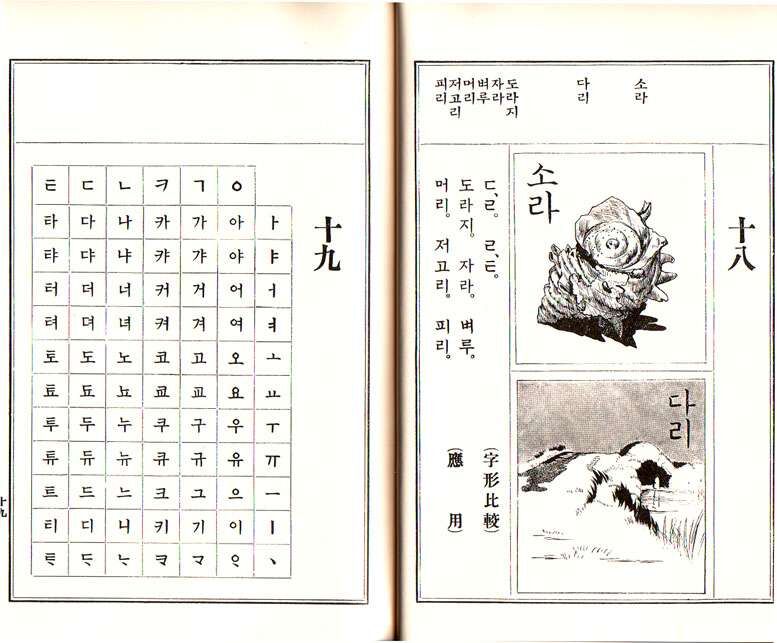 소라
다리
도라지
자라
벼루
머리
저고리
피리
十八
소라
다리
ㄷ、ㄹ。ㄹ、ㅌ。(字形比較)
도라지。자라。벼루。
머리。저고리。피리。
(應用)
十九
ㅇ ㄱ ㅋ ㄴ ㄷ ㅌ
ㅏ 아 가 카 나 다 타
ㅑ 야 갸 캬 냐 댜 탸
ㅓ 어 거 커 너 더 터
ㅕ 여 겨 켜 녀 뎌 텨
ㅗ 오 고 코 노 도 토
ㅛ 요 교 쿄 뇨 됴 툐
ㅜ 우 구 쿠 누 두 투
ㅠ 유 규 큐 뉴 듀 튜
ㅡ 으 그 크 느 드 트
ㅣ 이 기 키 니 디 티
ㆍ ᄋᆞ ᄀᆞ ᄏᆞ ᄂᆞ ᄃᆞ ᄐᆞ
十九